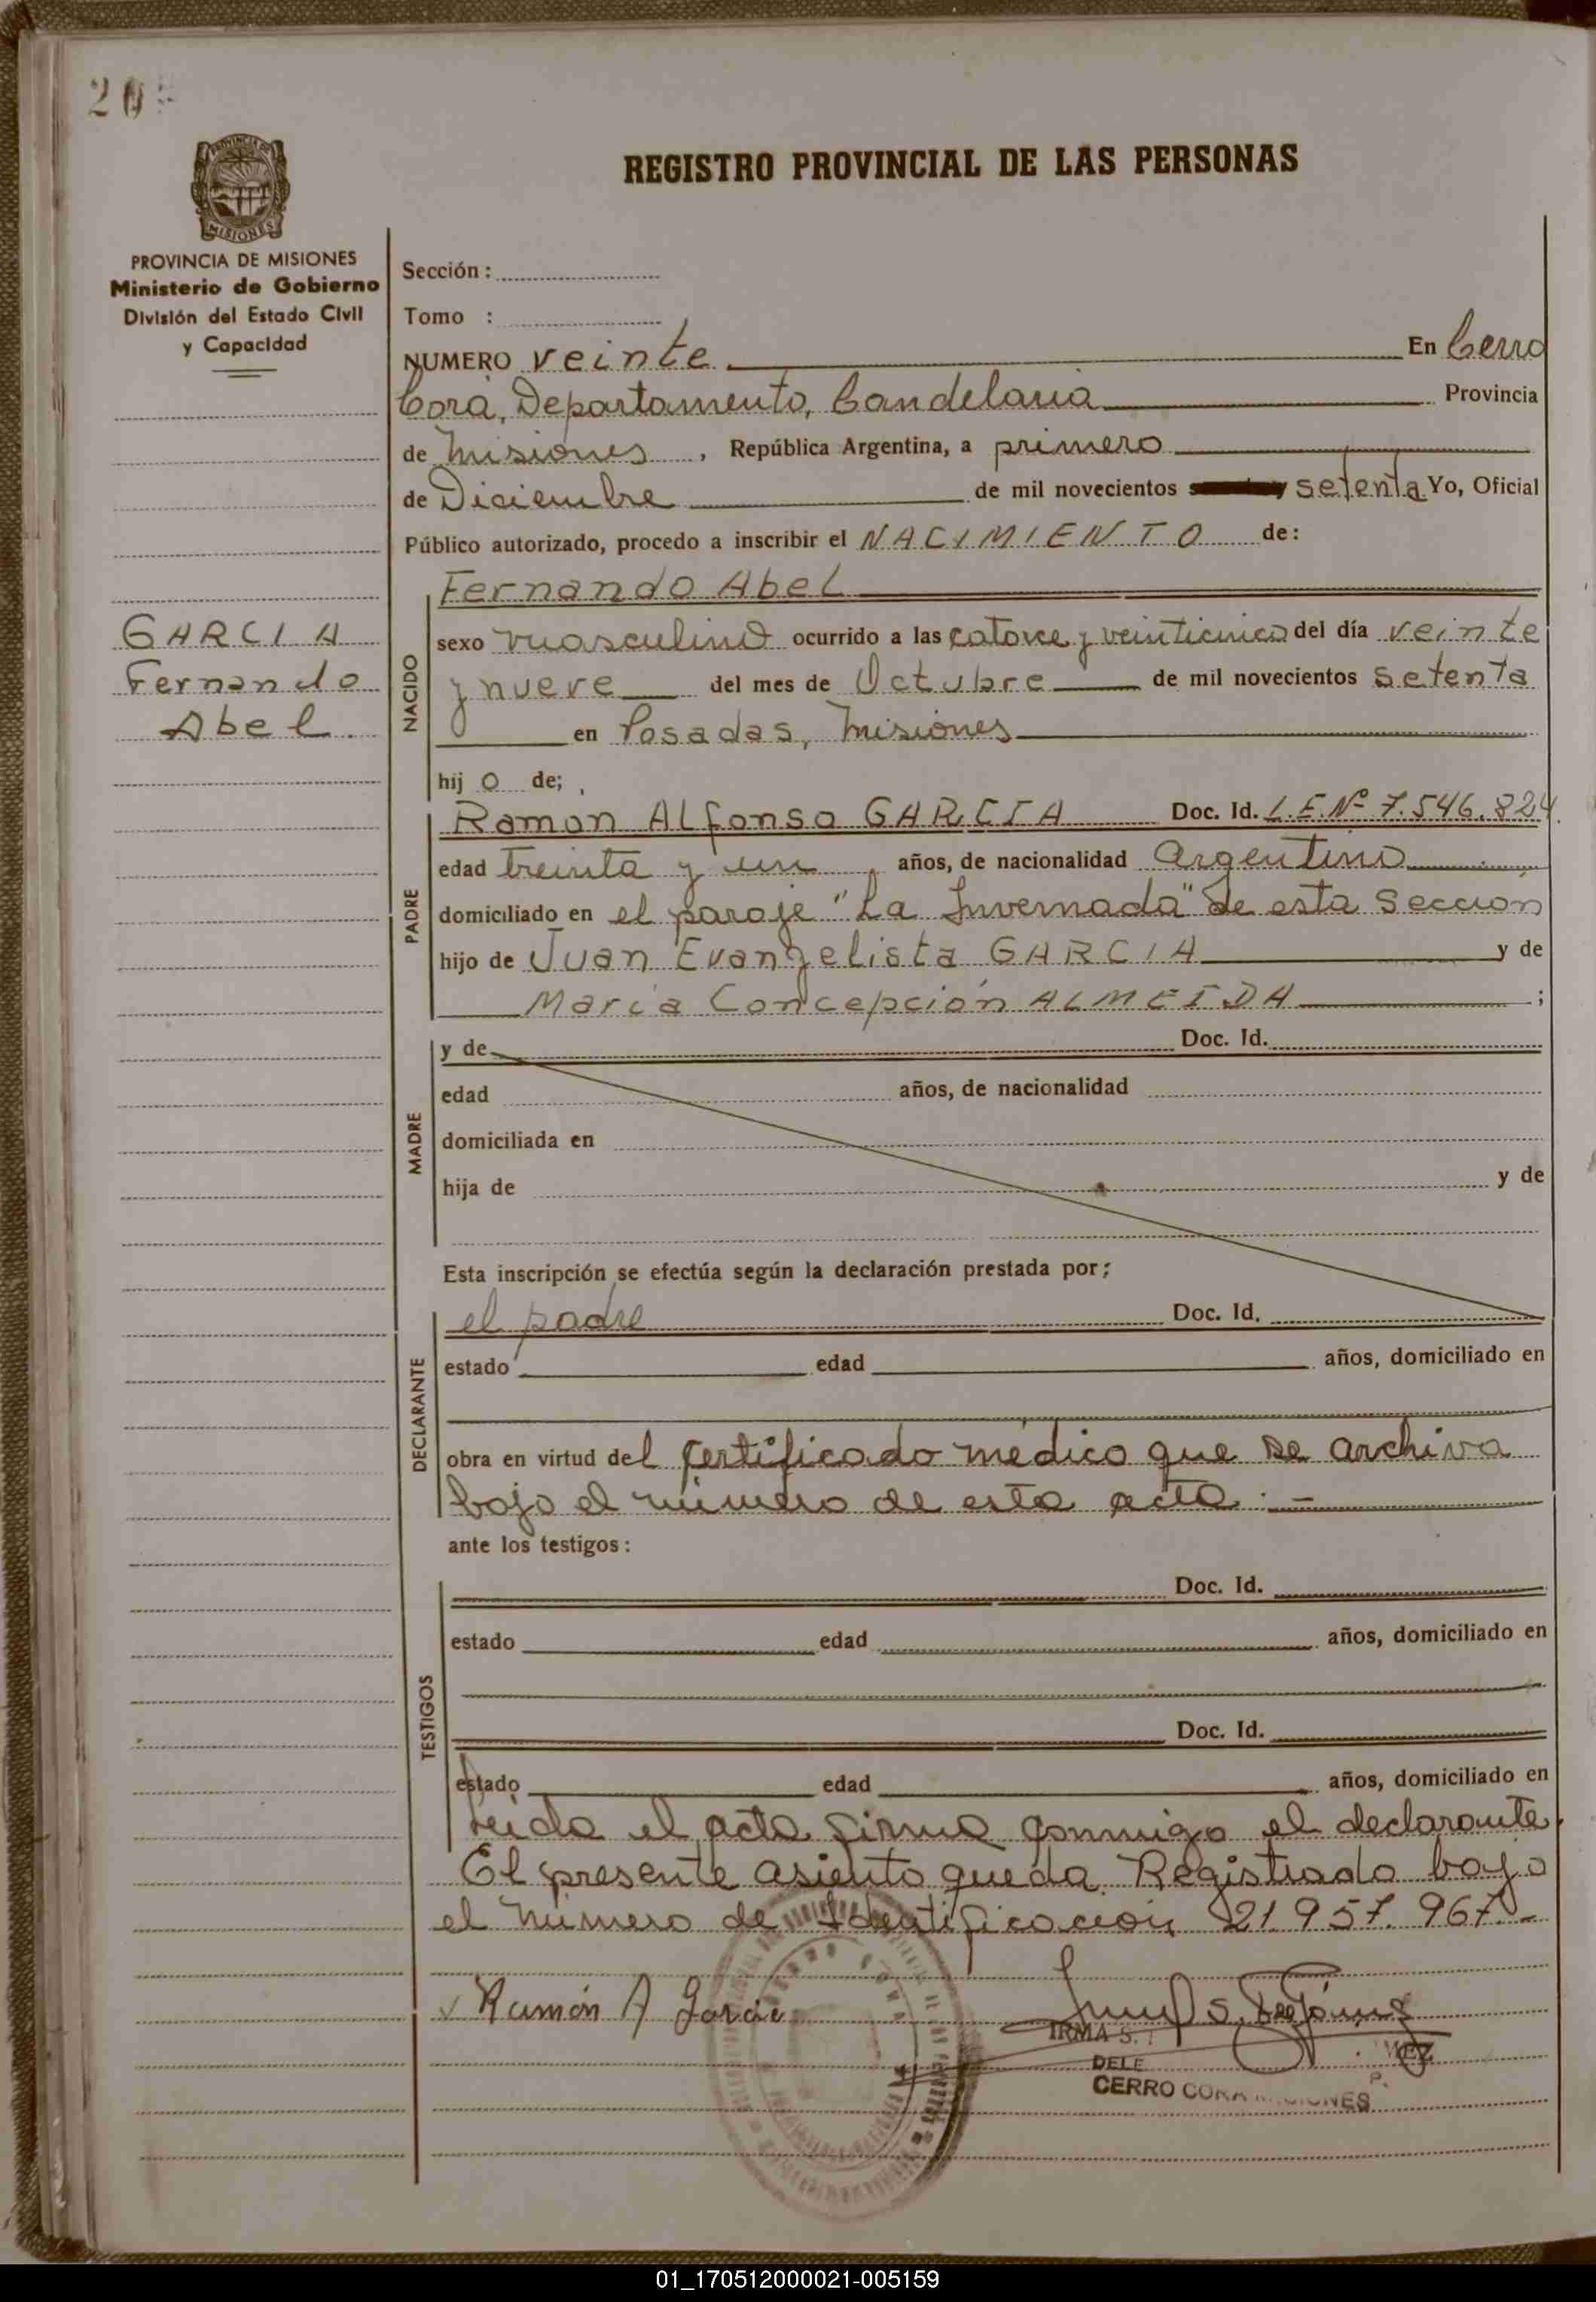 20
REGISTRO PROVINCIAL DE LAS PERSONAS
PROVINCIA DE
MISIONES
PROVINCIA DE MISIONES
Ministerio de Gobierno
División del Estado Civil
y Capacidad
GARCIA
Fernando
Abel.
Sección:
Tomo :
NUMERO veinte En Cerro
Corá, Departamento, Candelaria Provincia
de Misiones, República Argentina, a primero
de Diciembre de mil novecientos setenta Yo, Oficial
Público autorizado, procedo a inscribir el NACIMIENTO de:
NACIDO
Fernando Abel
sexo masculino ocurrido a las catorce y veinticinco del día veinte
y nueve del mes de Octubre de mil novecientos setenta
en Posadas, Misiones
hijo de;
PADRE
Ramon Alfonso GARCIA Doc. Id. L.E.Nº 7.546.824.
edad treinta y un años, de nacionalidad argentino
domiciliado en el paraje "La Invernada" de esta Sección
hijo de Juan Evangelista GARCIA y de
Maria Concepción ALMEIDA ;
MADRE
y de Doc. Id.
edad años, de nacionalidad
domiciliada en
hija de y de
Esta inscripción se efectúa según la declaración prestada por;
DECLARANTE
el padre Doc. Id.
estado edad años, domiciliado en
obra en virtud del certificado médico que se archiva
bajo el número de esta acta.-
ante los testigos:
TESTIGOS
Doc. Id.
estado edad años, domiciliado en
Doc. Id.
estado edad años, domiciliado en
Leida el acta firma conmigo el declarante.
El presente asiento queda Registrado bajo
el número de Identificación 21.957.967.-
Ramón A Garcia
IRMA S.
DELE
CERRO CORA MISIONES
01_170512000021-005159